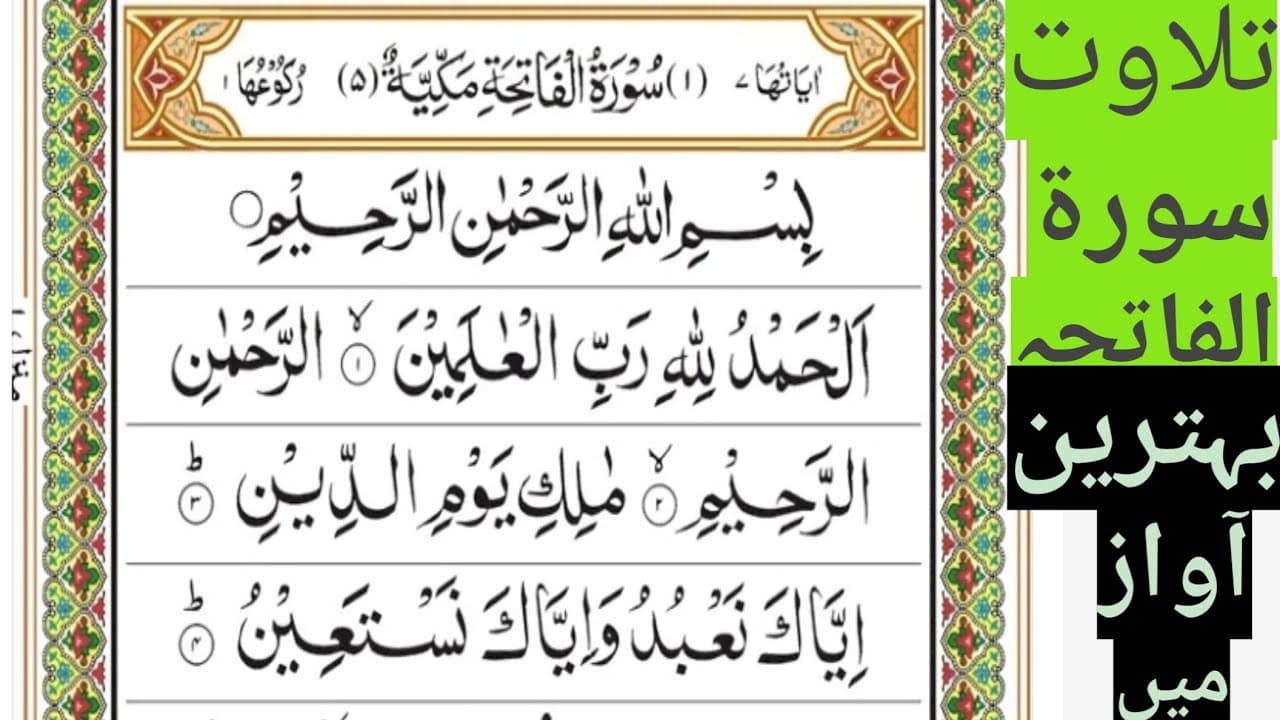 اٰيَاتُهَا ٧ (١) سُوْرَةُ الْفَاتِحَةِ مَكِّيَّةٌ (٥) رُكُوْعُهَا ١
بِسْمِ اللّٰهِ الرَّحْمٰنِ الرَّحِيْمِ ۝
اَلْحَمْدُ لِلّٰهِ رَبِّ الْعٰلَمِيْنَ ۙ ١ الرَّحْمٰنِ
الرَّحِيْمِ ۙ ٢ مٰلِكِ يَوْمِ الدِّيْنِ ؕ ٣
اِيَّاكَ نَعْبُدُ وَاِيَّاكَ نَسْتَعِيْنُ ؕ ۴
تلاوت
سورة
الفاتحہ
بہترین
آواز
میں